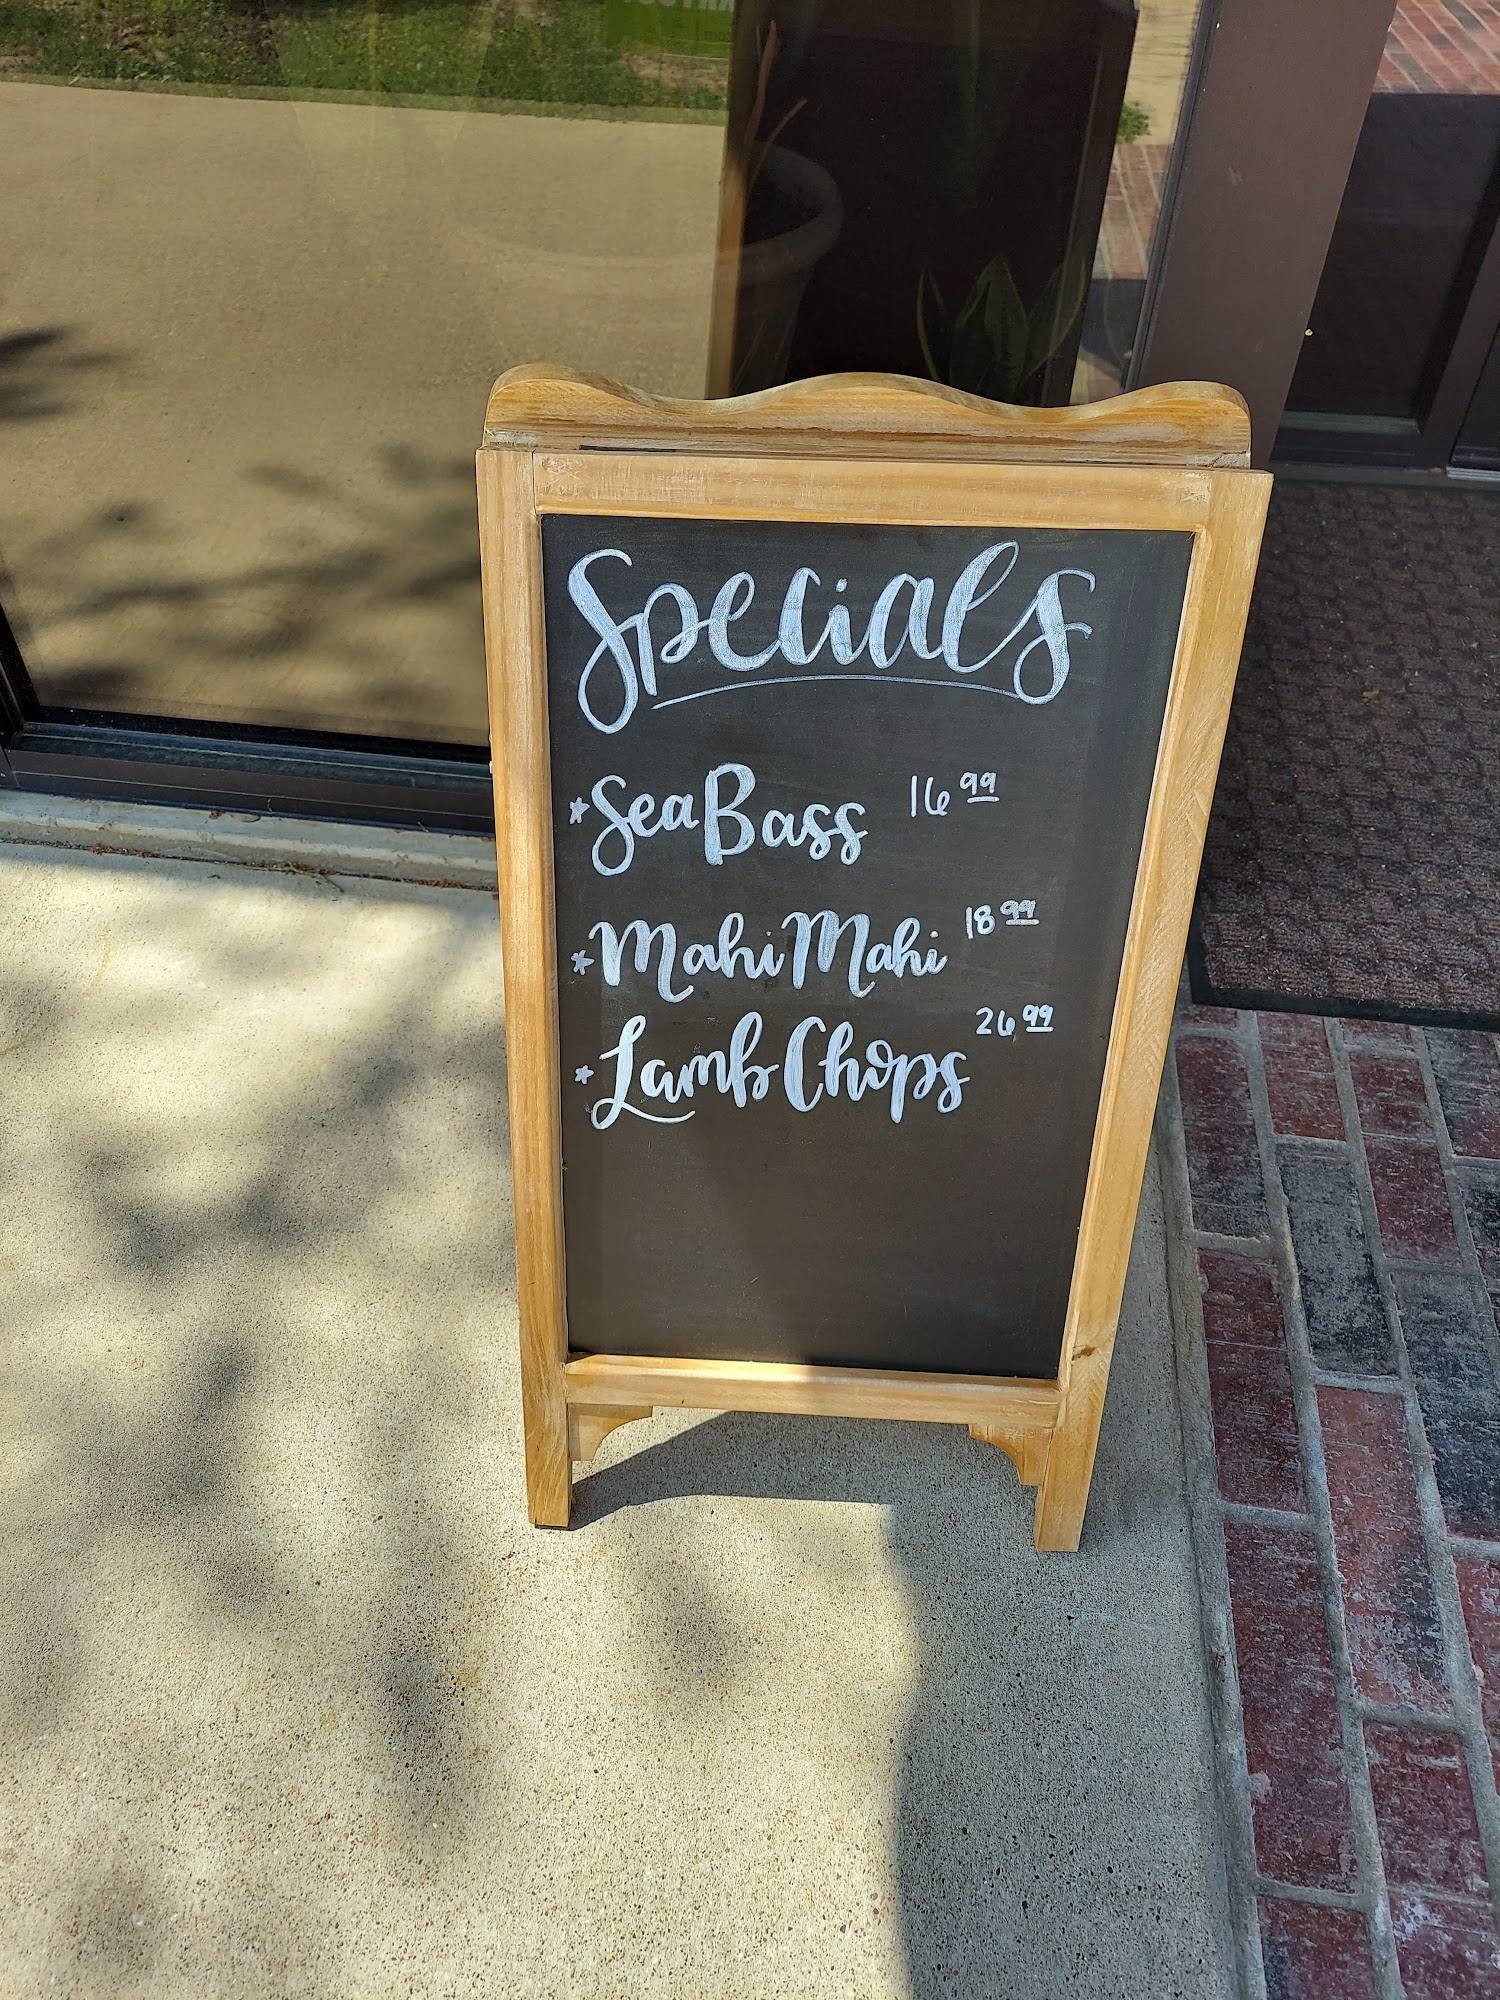 Specials
*Sea Bass 16 99
*Mahi Mahi 18 99
*Lamb Chops 26 99